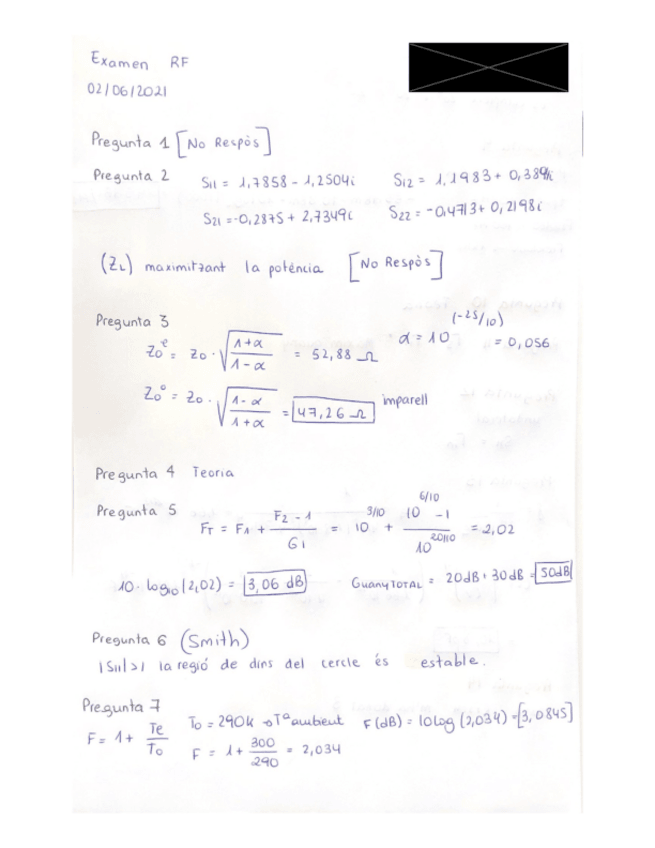 Examen RF
02/06/2021
Pregunta 1 [No Respòs]
Pregunta 2 S11 = 1,7858 - 1,2504i S12 = 1,1983 + 0,389i
S21 = -0,2875 + 2,7349i S22 = -0,4713 + 0,2198i
(ZL) maximitzant la poténcia [No Respòs]
Pregunta 3
Zo^e = Zo · √((1+α)/(1-α)) = 52,88 Ω α = 10^(-25/10) = 0,056
Zo^o = Zo · √((1-α)/(1+α)) = 47,26 Ω imparell
Pregunta 4 Teoria
Pregunta 5
FT = F1 + (F2 - 1)/G1 = 10^(3/10) + (10^(6/10) - 1)/10^(20/10) = 2,02
10 · log10 (2,02) = 3,06 dB Guany TOTAL = 20dB + 30dB = 50dB
Pregunta 6 (Smith)
|S11|>1 la regió de dins del cercle és estable.
Pregunta 7
F = 1 + Te/To To = 290k → Tª ambient F(dB) = 10log (2,034) = [3,0845]
F = 1 + 300/290 = 2,034